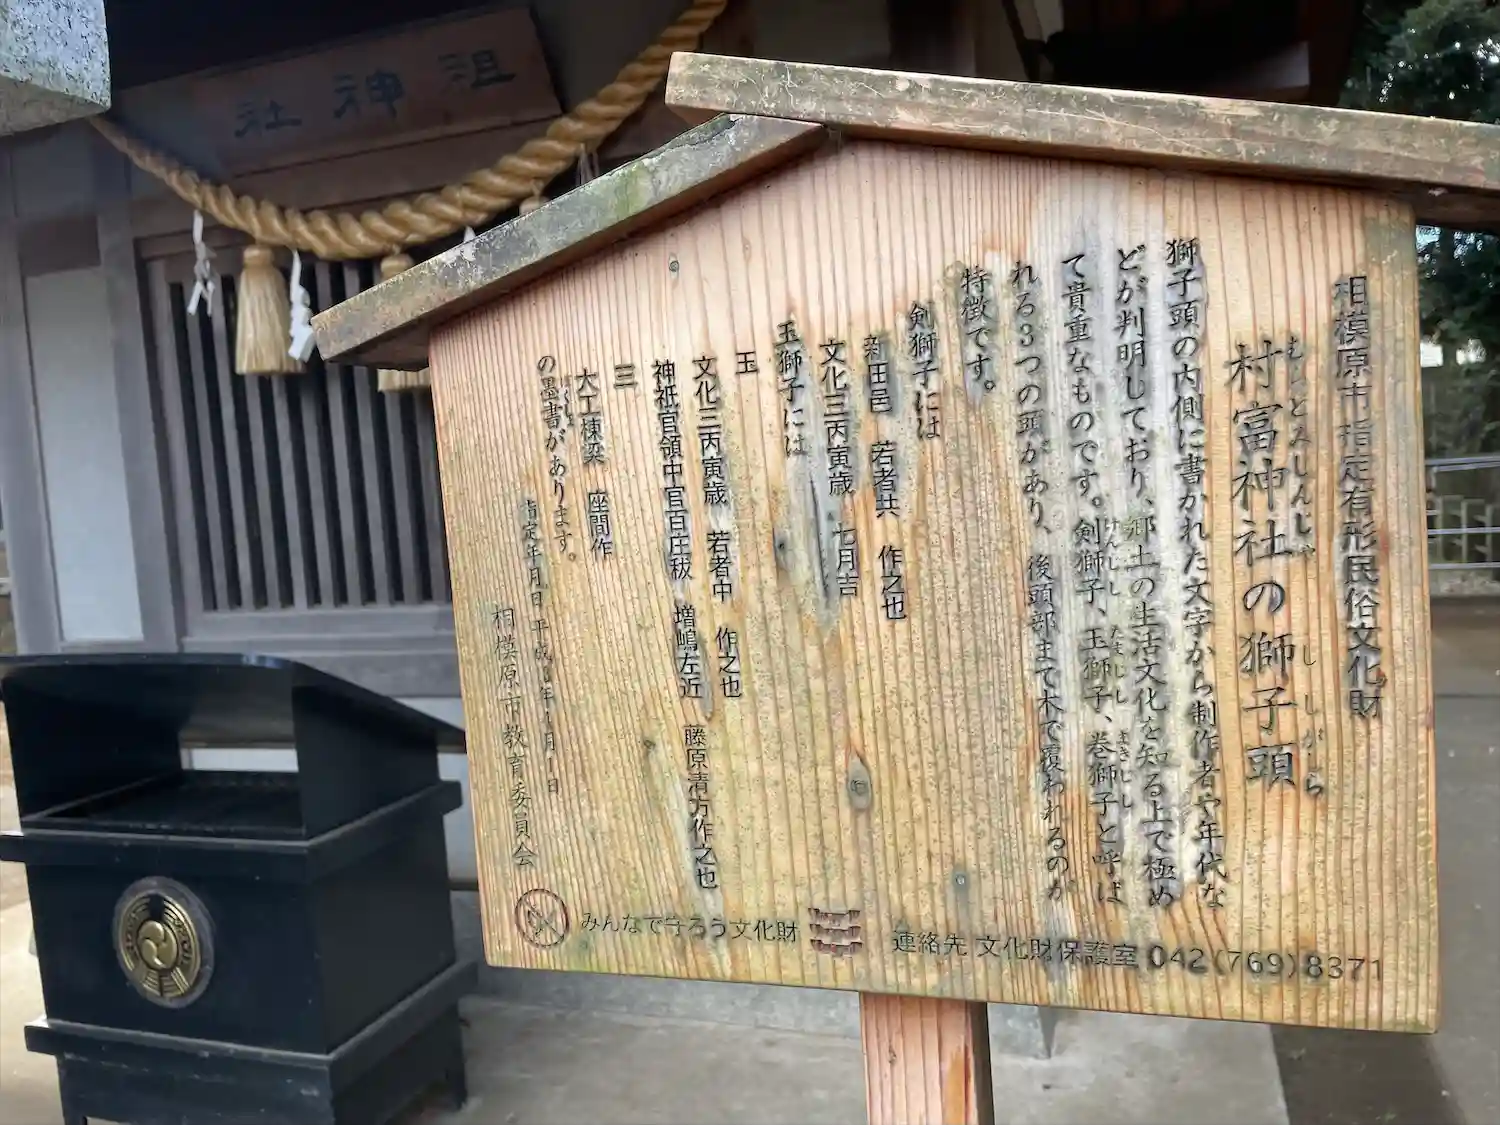 相模原市指定有形民俗文化財
むらとみしんじゃ
村富神社の獅子頭
し しがしら
獅子頭の内側に書かれた文字から制作者や年代な
どが判明しており、郷土の生活文化を知る上で極め
て貴重なものです。剣獅子、玉獅子、巻獅子と呼ば
けんじし たまじし まきじし
れる3つの頭があり、後頭部まで木で覆われるのが
特徴です。
剣獅子には
新田邑 若者共 作之也
文化三丙寅歳 七月吉
玉獅子には
玉
文化三丙寅歳 若者中 作之也
神祇官領中官百庄秡 増嶋左近 藤原清方作之也
三
大工棟梁 座間作
の墨書があります。
ぼくしょ
指定年月日 平成 年 月 日
相模原市教育委員会
みんなで守ろう文化財
連絡先 文化財保護室 042(769)8371
祖神社